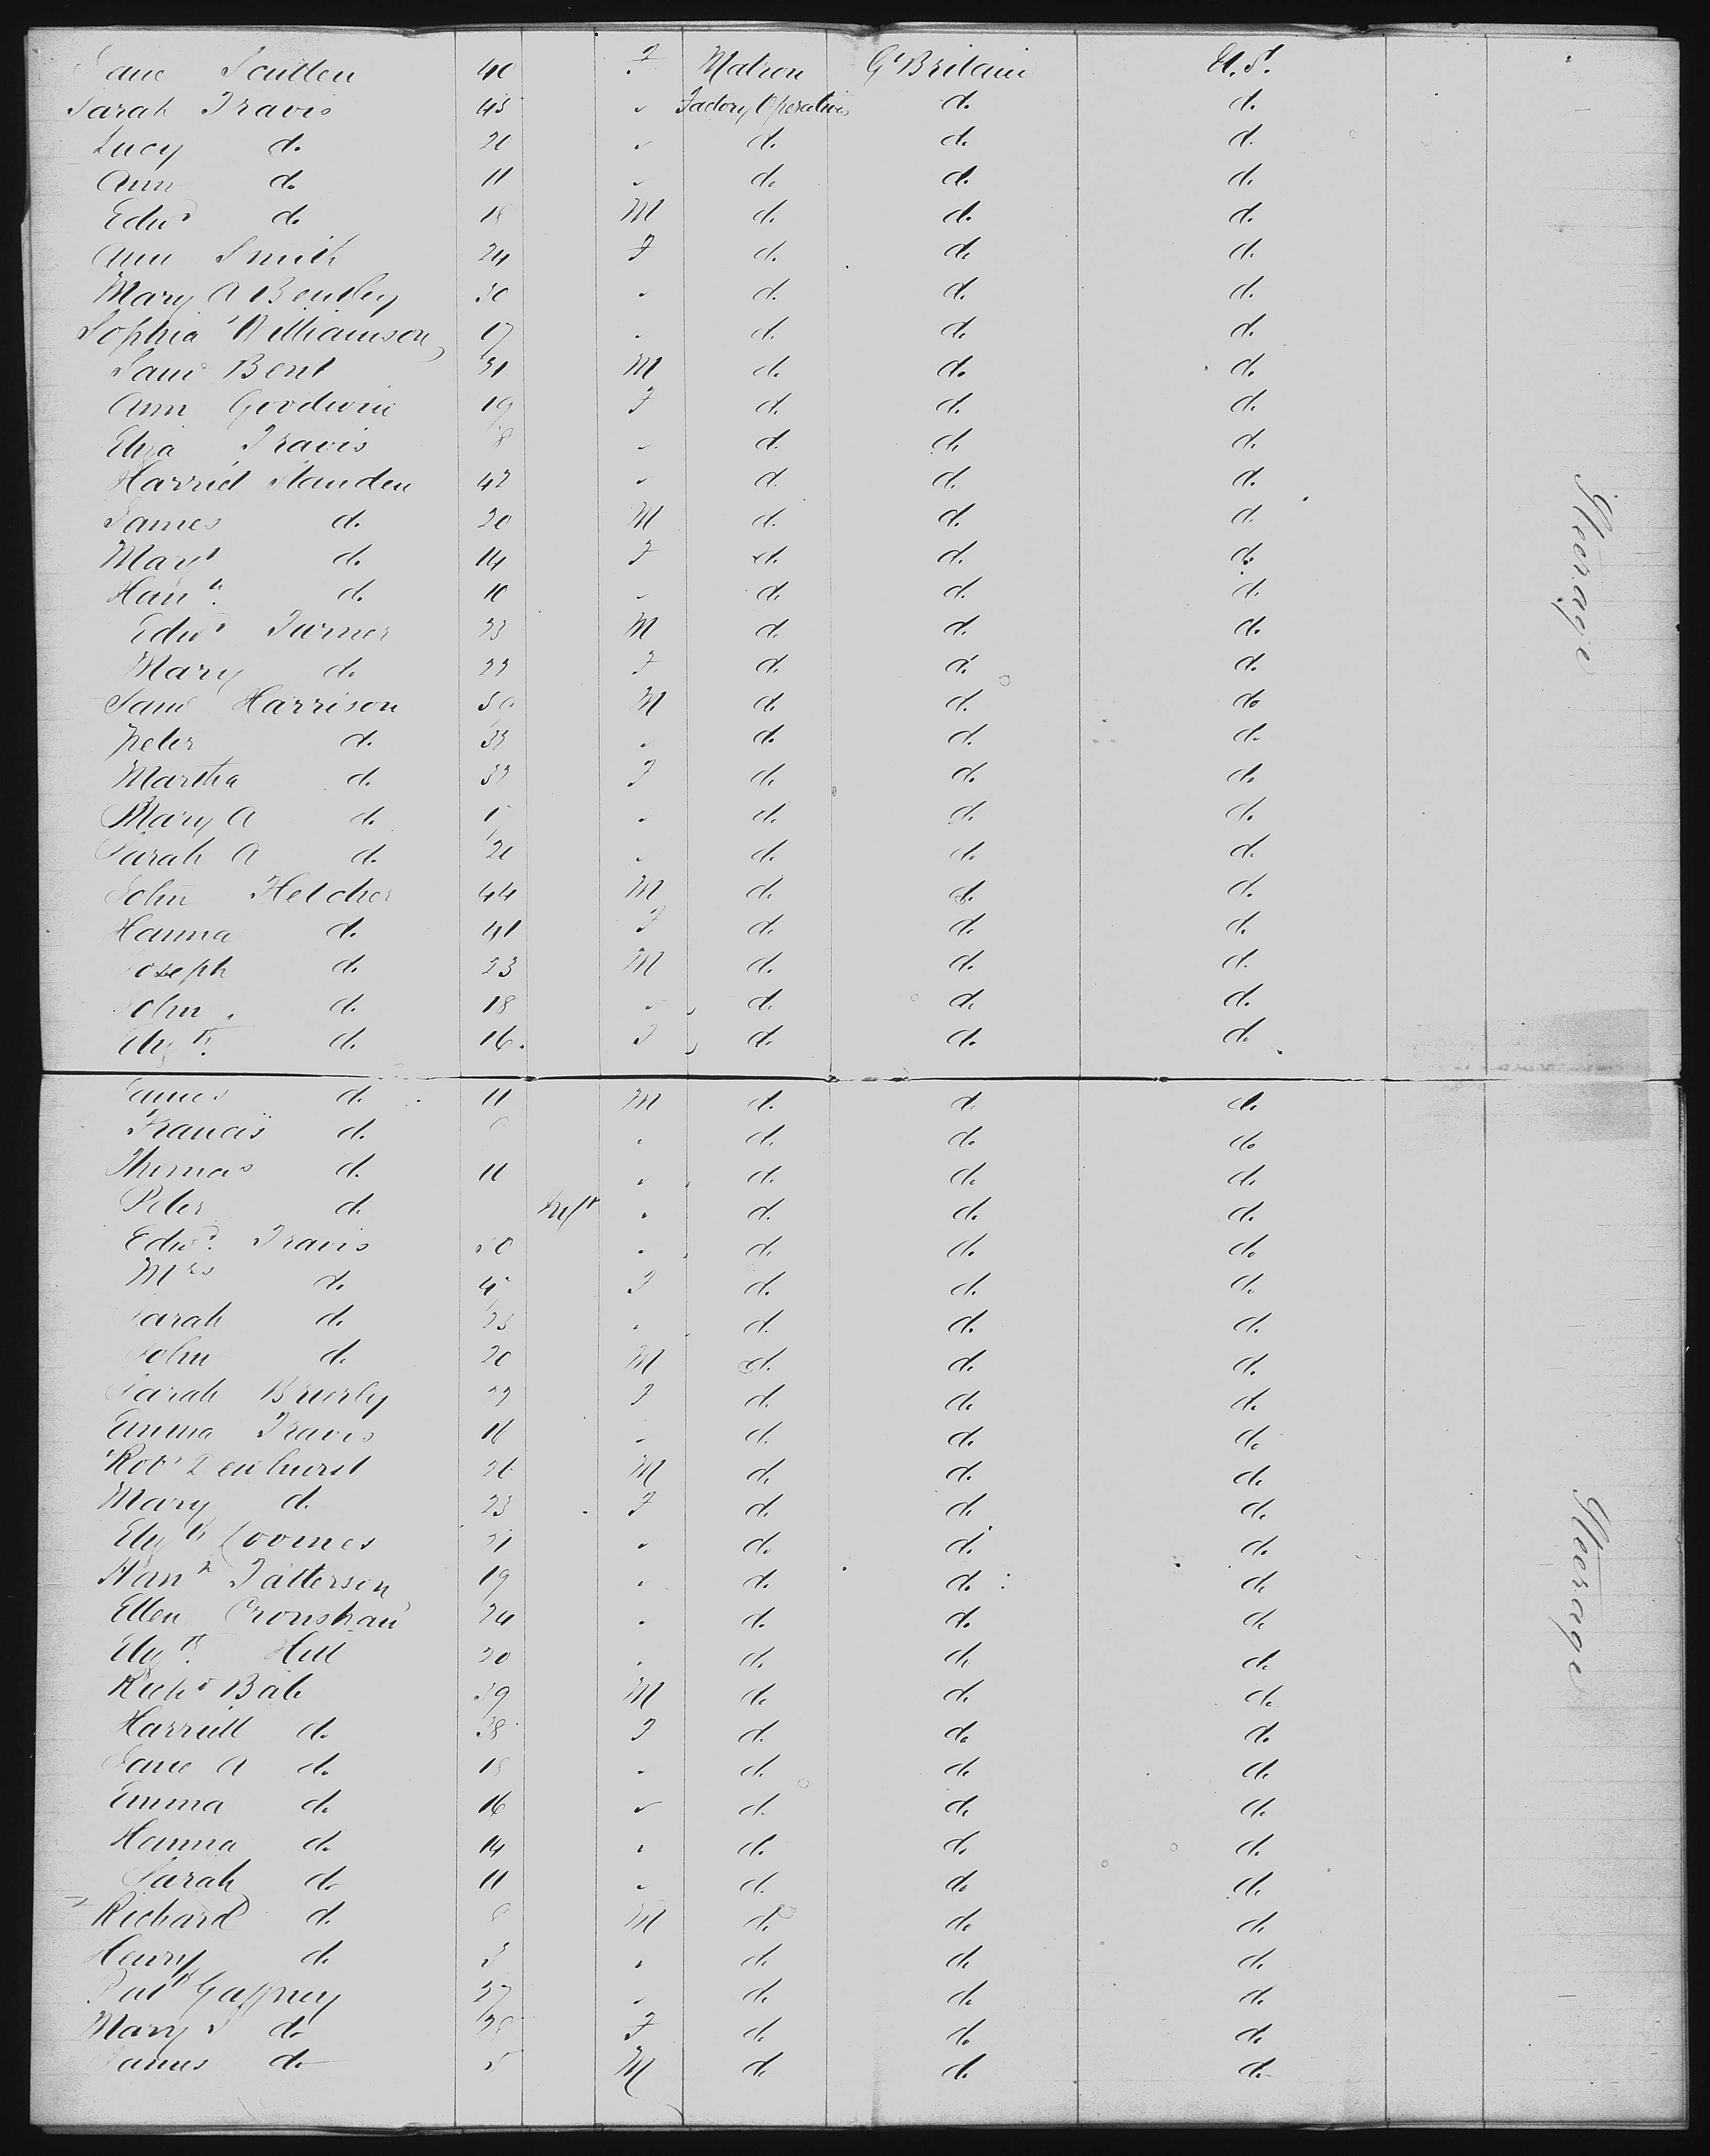 Jane Scutten 40 F Matron Gt Britain U.St.
Sarah Travis 45 " Factory Operatives do do
Lucy do 20 " do do do
Ann do 11 " do do do
Edwd do 18 M do do do
Ann Smith 24 F do do do
Mary A Bentley 30 " do do do
Sophia Williamson 17 " do do do
Saml Bent 31 M do do do
Ann Goodwin 19 F do do do
Eliza Travis 8 " do do do
Harriet Standen 42 " do do do
James do 20 M do do do
Margt do 14 F do do do
Hanh do 10 " do do do
Edwd Turner 23 M do do do
Mary do 22 F do do do
Saml Harrison 50 M do do do
Peter do 33 " do do do
Martha do 33 F do do do
Mary A do " do do do
Sarah A do 20 " do do do
John Fletcher 44 M do do do
Hanna do 41 F do do do
Joseph do 23 M do do do
John do 18 " do do do
Elizth do 16 F do do do
James do 11 M do do do
Francis do " do do do
Thomas do 11 " do do do
Peter do Inft " do do do
Edwd Travis 50 " do do do
Mrs do F do do do
Sarah do 23 " do do do
John do 20 M do do do
Sarah Brierly 22 F do do do
Emma Travis 16 " do do do
Robt Dewhurst 26 M do do do
Mary do 23 F do do do
Elizth Coomes 21 " do do do
Hanh Patterson 19 " do do do
Ellen Cronshaw 24 " do do do
Elizth Hill 20 " do do do
Richd Bale 39 M do do do
Harriett do 38 F do do do
Jane A do 18 " do do do
Emma do 16 " do do do
Hanna do 14 " do do do
Sarah do 11 " do do do
Richard do 8 M do do do
Henry do 3 " do do do
Patk Gaffney 27 " do do do
Mary do 28 F do do do
James do 5 M do do do
Steerage
Steerage